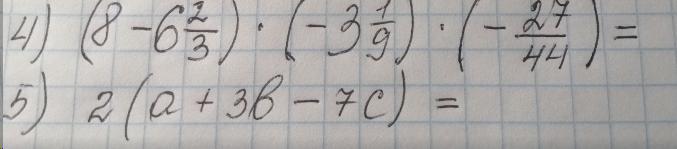 4) (8 - 6 2/3) · (-3 1/9) · (-27/44) =
5) 2(a + 3b - 7c) =